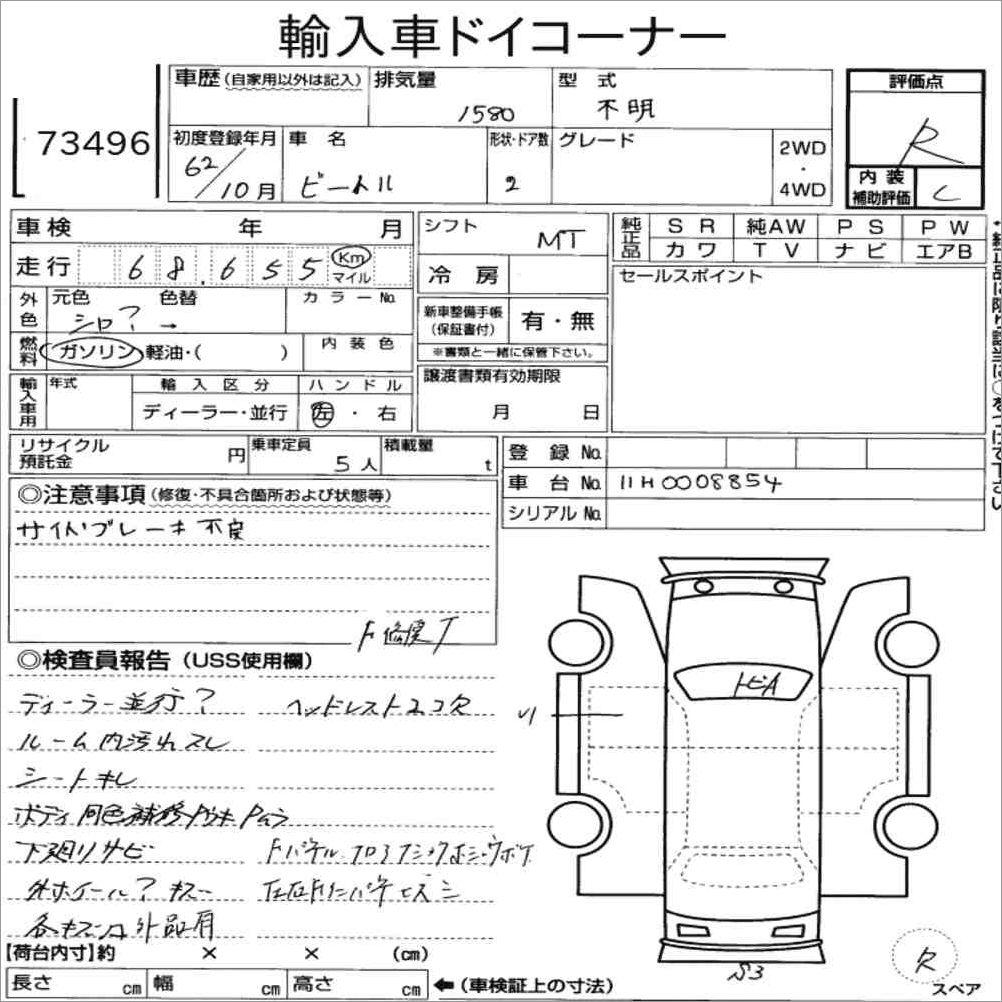 輸入車ドイコーナー
73496
車歴(自家用以外は記入) 排気量 1580 型 式 不明
評価点 R
初度登録年月 62/10月 車 名 ビートル 形状・ドア数 2 グレード 2WD・4WD
内装補助評価 C
車検 年 月
走行 68.655 Km マイル
外色 元色 シロ? 色替 → カラーNo.
燃料 ガソリン 軽油・( ) 内装色
輸入車用 年式 輸入区分 ディーラー・並行 ハンドル 左・右
リサイクル預託金 円 乗車定員 5人 積載量 t
シフト MT
冷房
新車整備手帳(保証書付) 有・無
※書類と一緒に保管下さい。
譲渡書類有効期限 月 日
純正品 SR 純AW PS PW
カワ TV ナビ エアB
セールスポイント
登録No.
車台No. 11H0008854
シリアルNo.
◎注意事項(修復・不具合箇所および状態等)
サイドブレーキ不良
◎検査員報告(USS使用欄)
ディーラー並行? ヘッドレスト2コ欠
ルーム内汚れスレ
シートキレ
ボディ同色補修
下廻りサビ
トビA
S3
【荷台内寸】約 × × (cm)
長さ cm 幅 cm 高さ cm ←(車検証上の寸法)
スペア